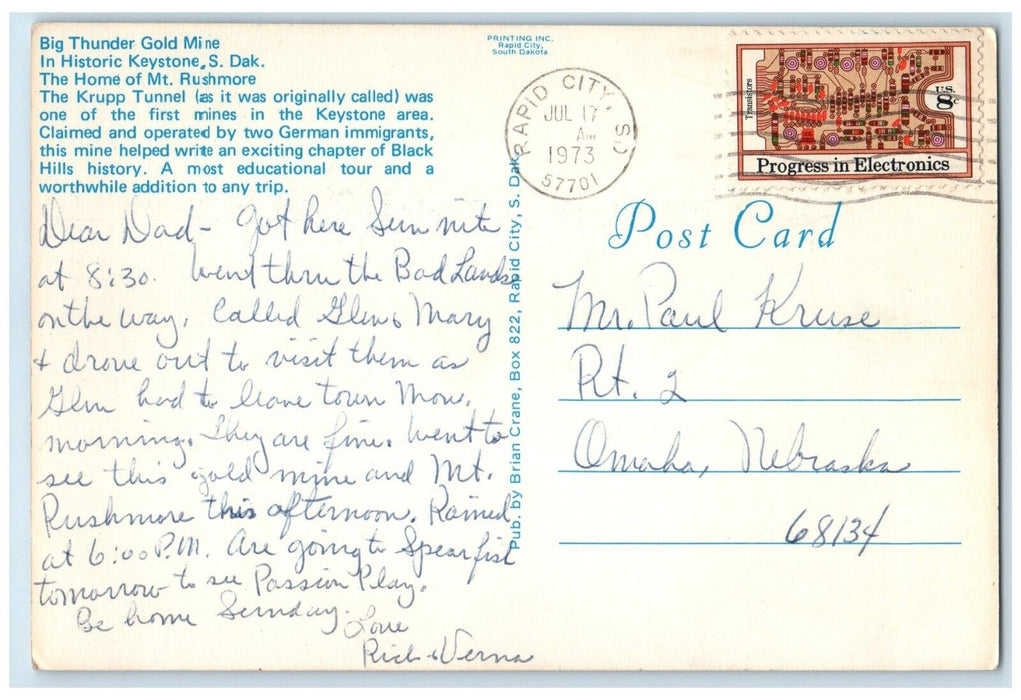 Big Thunder Gold Mine
In Historic Keystone, S. Dak.
The Home of Mt. Rushmore
The Krupp Tunnel (as it was originally called) was
one of the first mines in the Keystone area.
Claimed and operated by two German immigrants,
this mine helped write an exciting chapter of Black
Hills history. A most educational tour and a
worthwhile addition to any trip.
Dear Dad - Got here Sun nite
at 8:30. Went thru the Bad Lands
on the way. Called Glen & Mary
& drove out to visit them as
Glen had to leave town Mon.
morning. They are fine. Went to
see this gold mine and Mt.
Rushmore this afternoon. Rained
at 6:00 P.M. Are going to Spearfish
tomorrow to see Passion Play.
Be home Sunday.
Love
Rich & Verna
PRINTING INC.
Rapid City,
South Dakota
Pub. by Brian Crane, Box 822, Rapid City, S. Dak.
RAPID CITY, S.D
JUL 17
AM
1973
57701
Transistors
U.S.
8c
Progress in Electronics
Post Card
Mr. Paul Kruse
Rt. 2
Omaha, Nebraska
68134